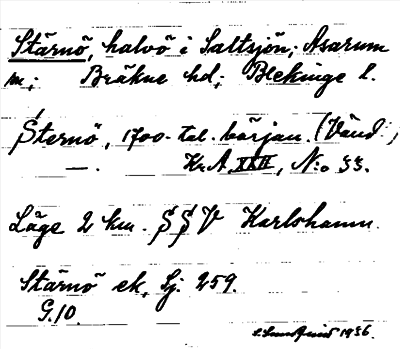 Stärnö, halvö i Saltsjön; Asarum
m; Bräkne hd; Blekinge l.
Sternö, 1700-tal. början. (Vänd;)
—. Kr.A. XXII, N:o 33.
Läge 2 km. SSV Karlshamn.
Stärnö ek. Sj. 259.
G.10.
1936.